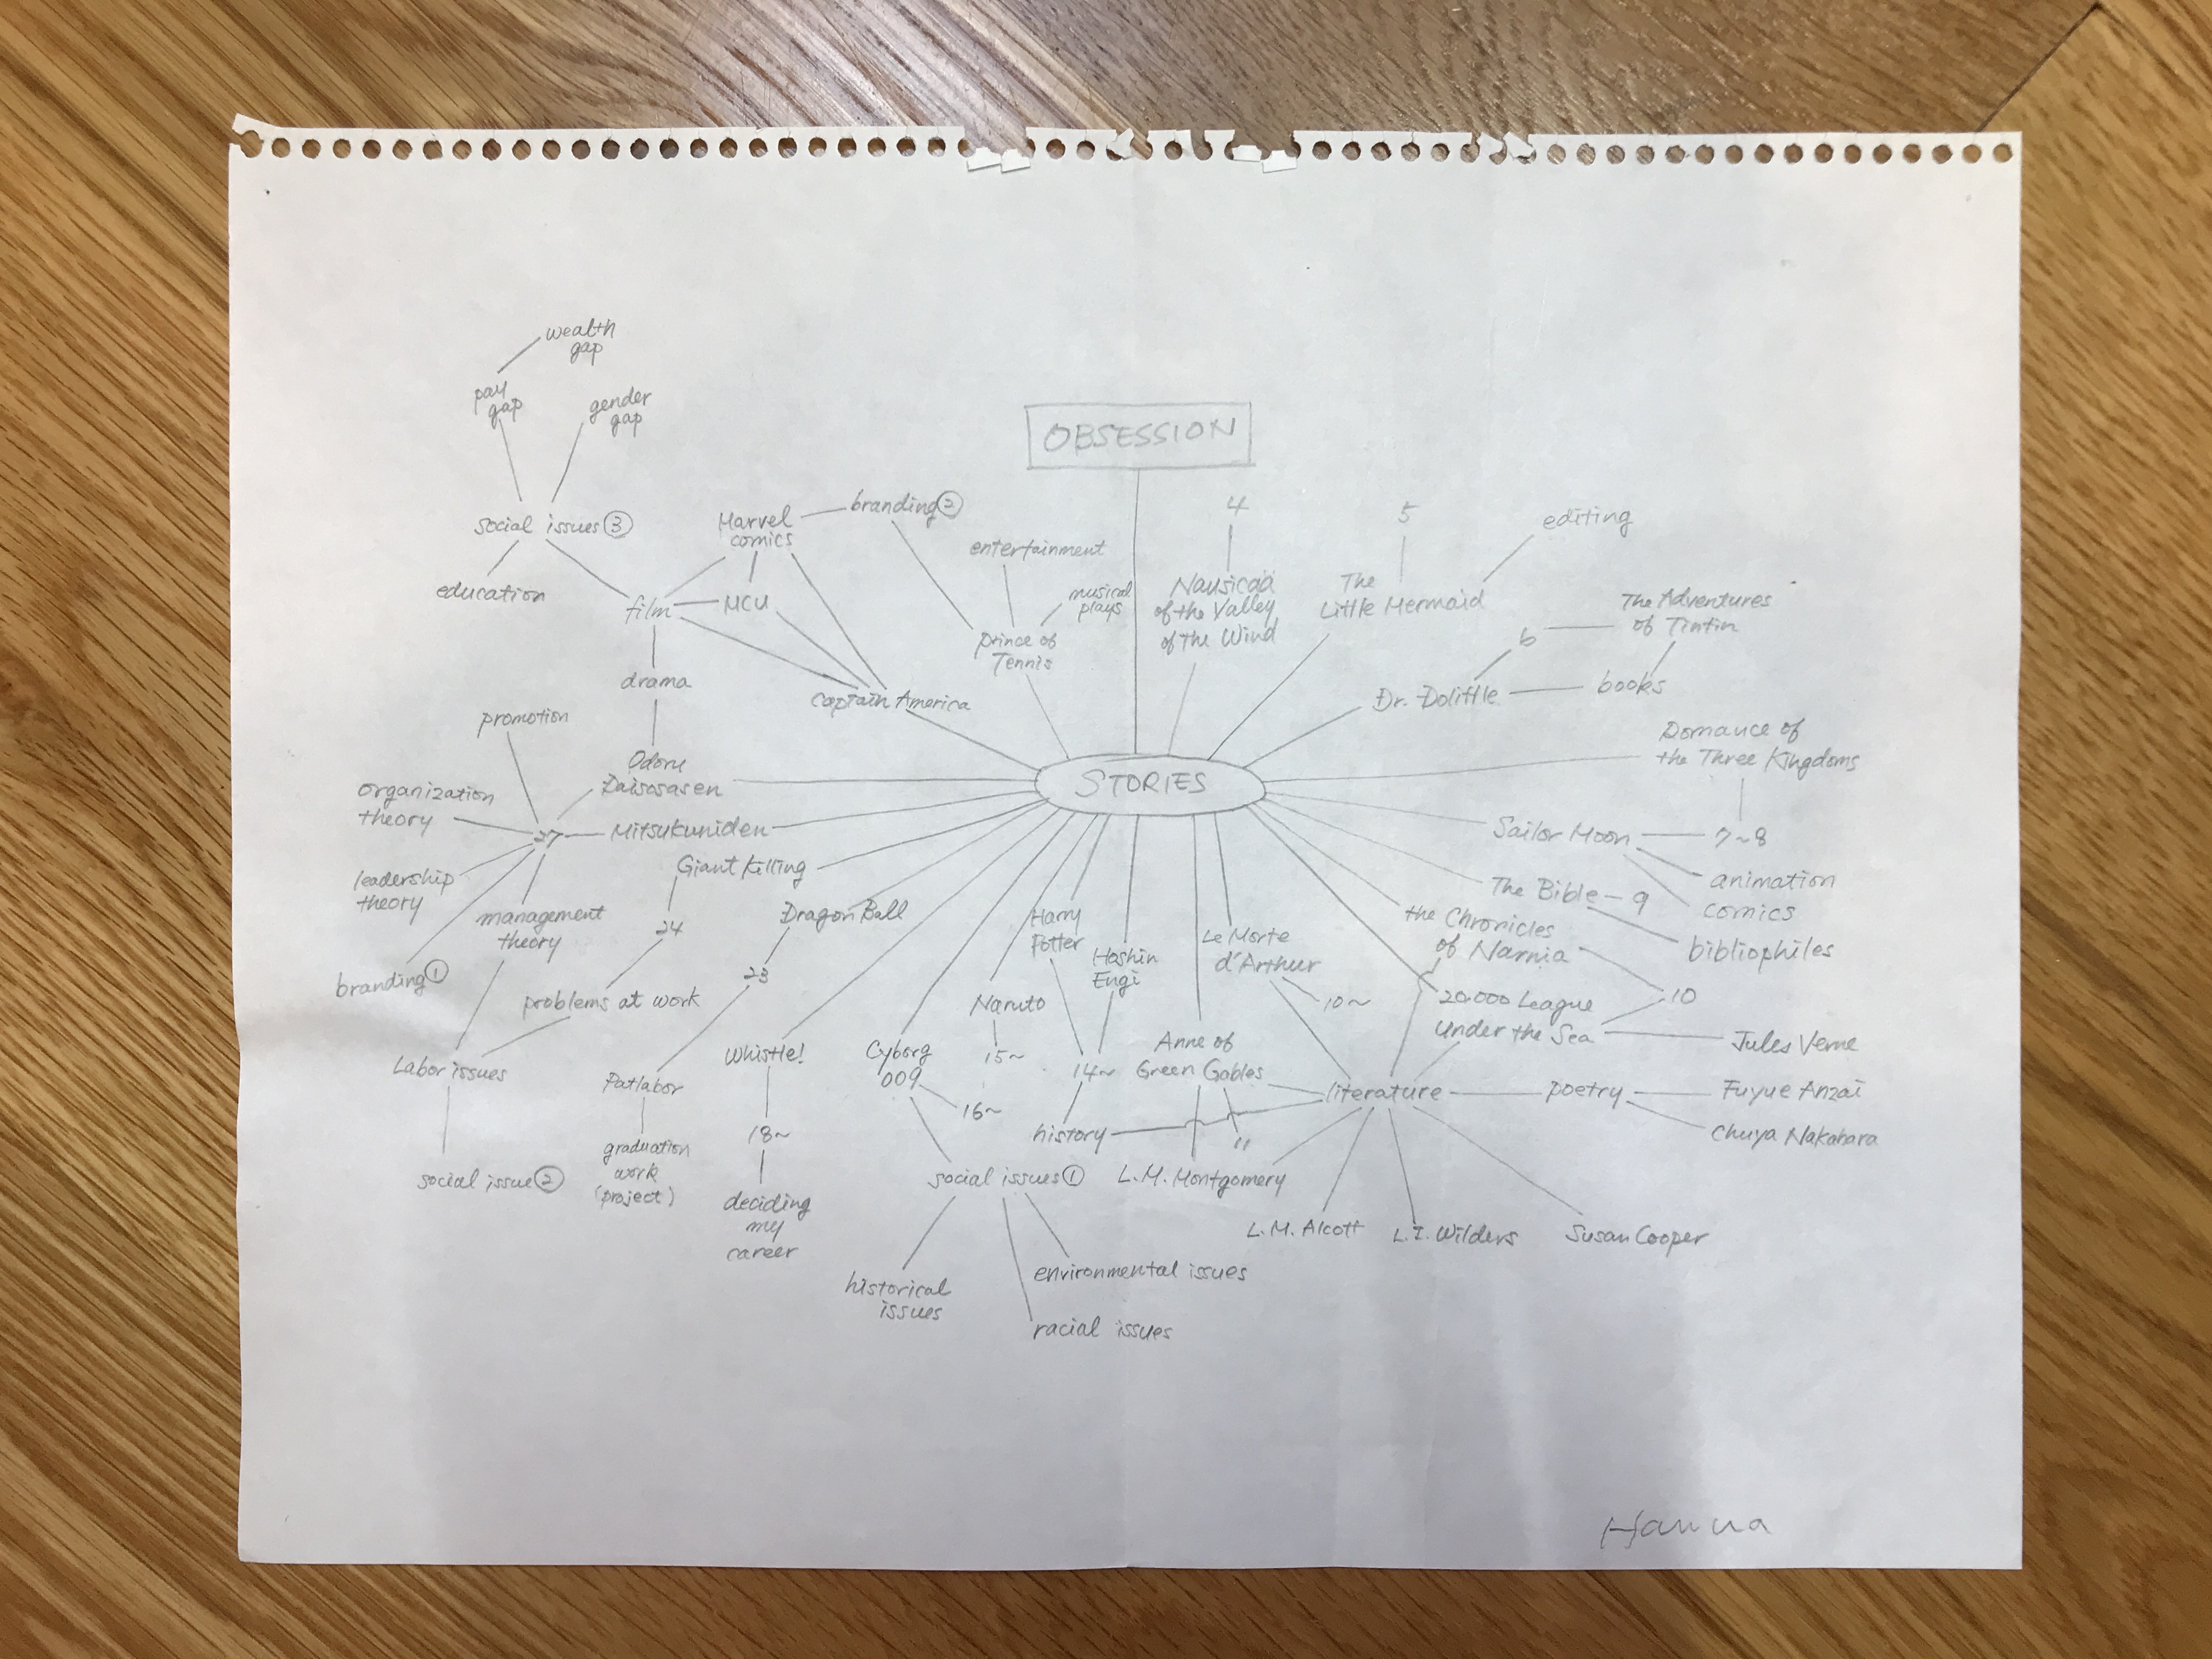 wealth
gap
pay
gap
gender
gap
OBSESSION
social issues ③
education
Marvel
comics
branding ②
entertainment
musical
plays
4
Nausicaä
of the Valley
of the Wind
5
The
Little Mermaid
editing
film
MCU
prince of
Tennis
6
The Adventures
of Tintin
drama
Captain America
Dr. Dolittle
books
promotion
Odoru
Daisosasen
STORIES
Domance of
the Three Kingdoms
organization
theory
27
Mitsukuniden
Sailor Moon
7~8
Giant Killing
leadership
theory
management
theory
24
Dragon Ball
Harry
Potter
Hoshin
Engi
Le Morte
d'Arthur
The Bible - 9
animation
comics
the Chronicles
of Narnia
bibliophiles
branding ①
problems at work
23
Naruto
10~
20.000 League
Under the Sea
10
Jules Verne
Labor issues
Patlabor
Whistle!
Cyborg
009
15~
14~
Anne of
Green Gables
literature
poetry
Fuyue Anzai
Chuya Nakahara
16~
history
11
social issue ②
graduation
work
(project)
18~
deciding
my
career
social issues ①
L.M. Montgomery
L.M. Alcott
L.I. Wilders
Susan Cooper
historical
issues
environmental issues
racial issues
Hanna